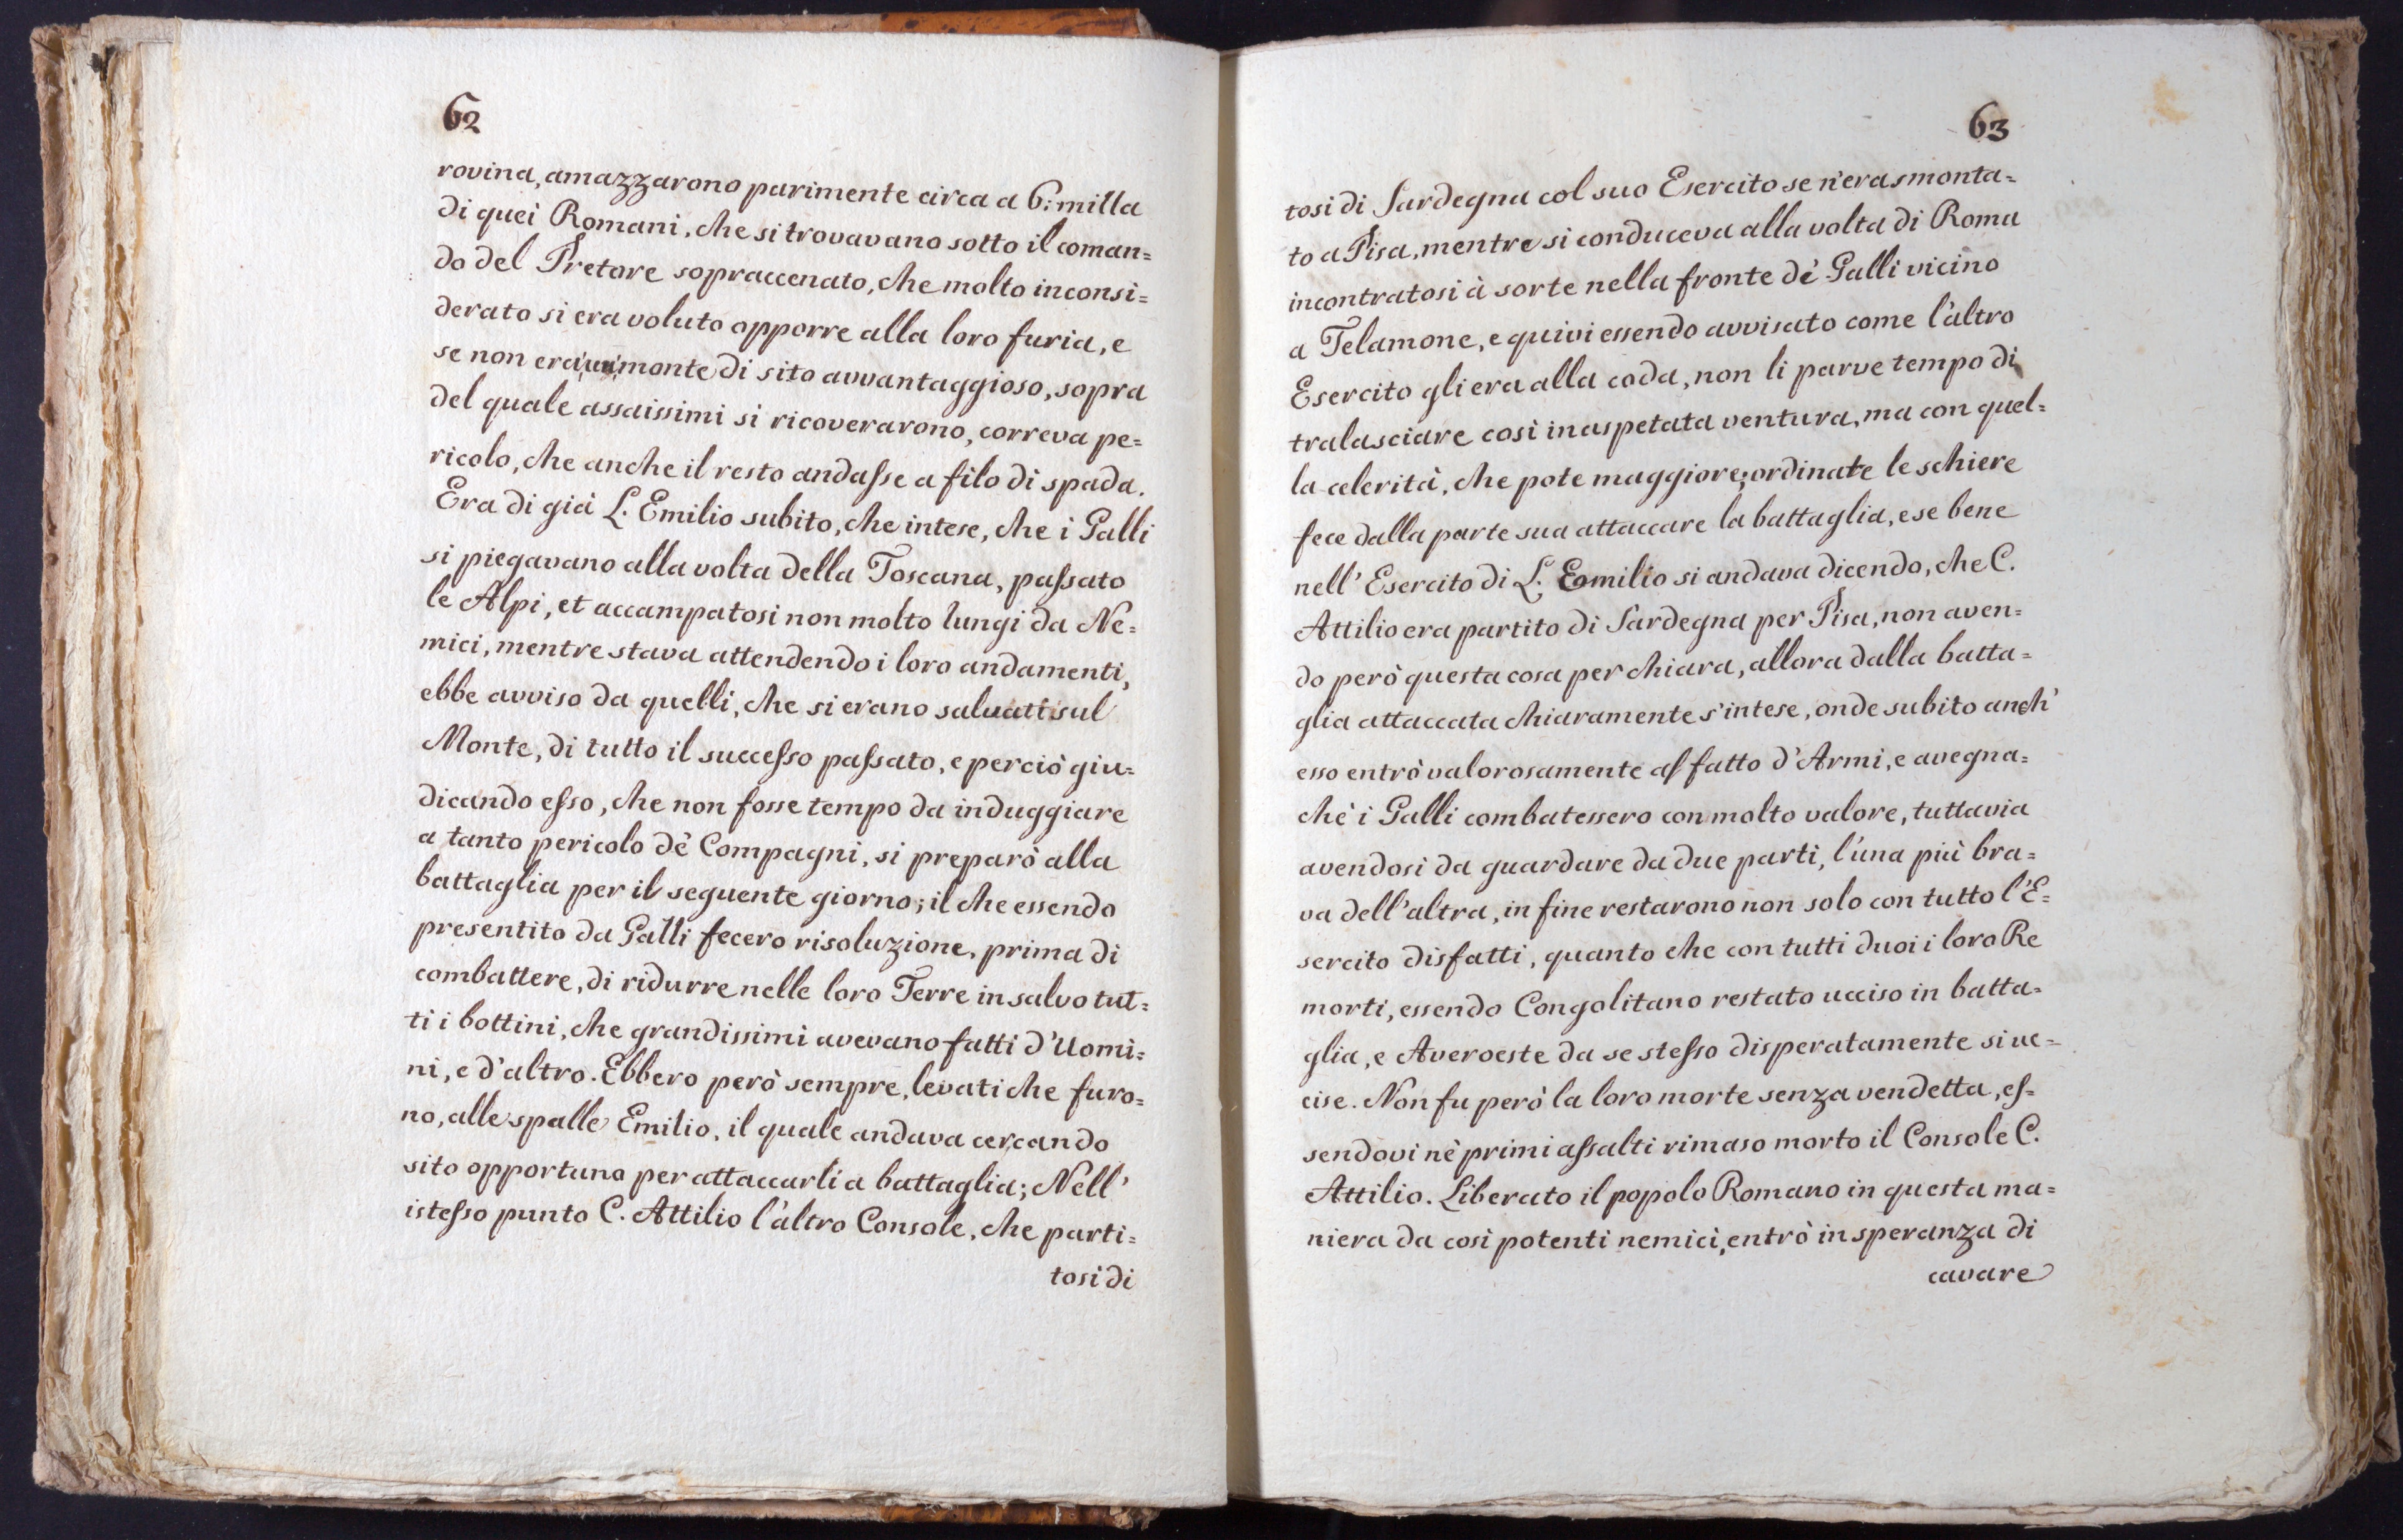 62
rovina, amazzarono parimente circa a 6: milla
di quei Romani, che si trovavano sotto il coman=
do del Pretore sopraccenato, che molto inconsi=
derato si era voluto opporre alla loro furia, e
se non era un monte di sito avvantaggioso, sopra
del quale assaissimi si ricoverarono, correva pe=
ricolo, che anche il resto andasse a filo di spada.
Era di già L. Emilio subito, che intese, che i Galli
si piegavano alla volta della Toscana, passato
le Alpi, et accampatosi non molto lungi da Ne=
mici, mentre stava attendendo i loro andamenti,
ebbe avviso da quelli, che si erano salvati sul
Monte, di tutto il successo passato, e perciò giu=
dicando esso, che non fosse tempo da induggiare
a tanto pericolo dè Compagni, si preparò alla
battaglia per il seguente giorno; il che essendo
presentito da Galli fecero risoluzione, prima di
combattere, di ridurre nelle loro Terre in salvo tut=
ti i bottini, che grandissimi avevano fatti d'Uomi=
ni, e d'altro. Ebbero però sempre, levati che furo=
no, alle spalle Emilio, il quale andava cercando
sito opportuno per attaccarli a battaglia; Nell'
istesso punto C. Attilio l'altro Console, che parti=
tosi di
63
tosi di Sardegna col suo Esercito se n'era smonta=
to a Pisa, mentre si conduceva alla volta di Roma
incontratosi à sorte nella fronte dè Galli vicino
a Telamone, e quivi essendo avvisato come l'altro
Esercito gli era alla coda, non li parve tempo di
tralasciare così inaspetata ventura, ma con quel=
la celerità, che pote maggiore; ordinate le schiere
fece dalla parte sua attaccare la battaglia, e se bene
nell' Esercito di L. Eomilio si andava dicendo, che C.
Attilio era partito di Sardegna per Pisa, non aven=
do però questa cosa per chiara, allora dalla batta=
glia attaccata chiaramente s'intese, onde subito anch'
esso entrò valorosamente al fatto d'Armi, e avegna=
chè i Galli combatessero con molto valore, tuttavia
avendosi da guardare da due parti, l'una più bra=
va dell'altra, in fine restarono non solo con tutto l'E=
sercito disfatti, quanto che con tutti duoi i loro Re
morti, essendo Congolitano restato ucciso in batta=
glia, e Averoeste da se stesso disperatamente si uc=
cise. Non fu però la loro morte senza vendetta, es=
sendovi nè primi assalti rimaso morto il Console C.
Attilio. Liberato il popolo Romano in questa ma=
niera da così potenti nemici, entrò in speranza di
cavare